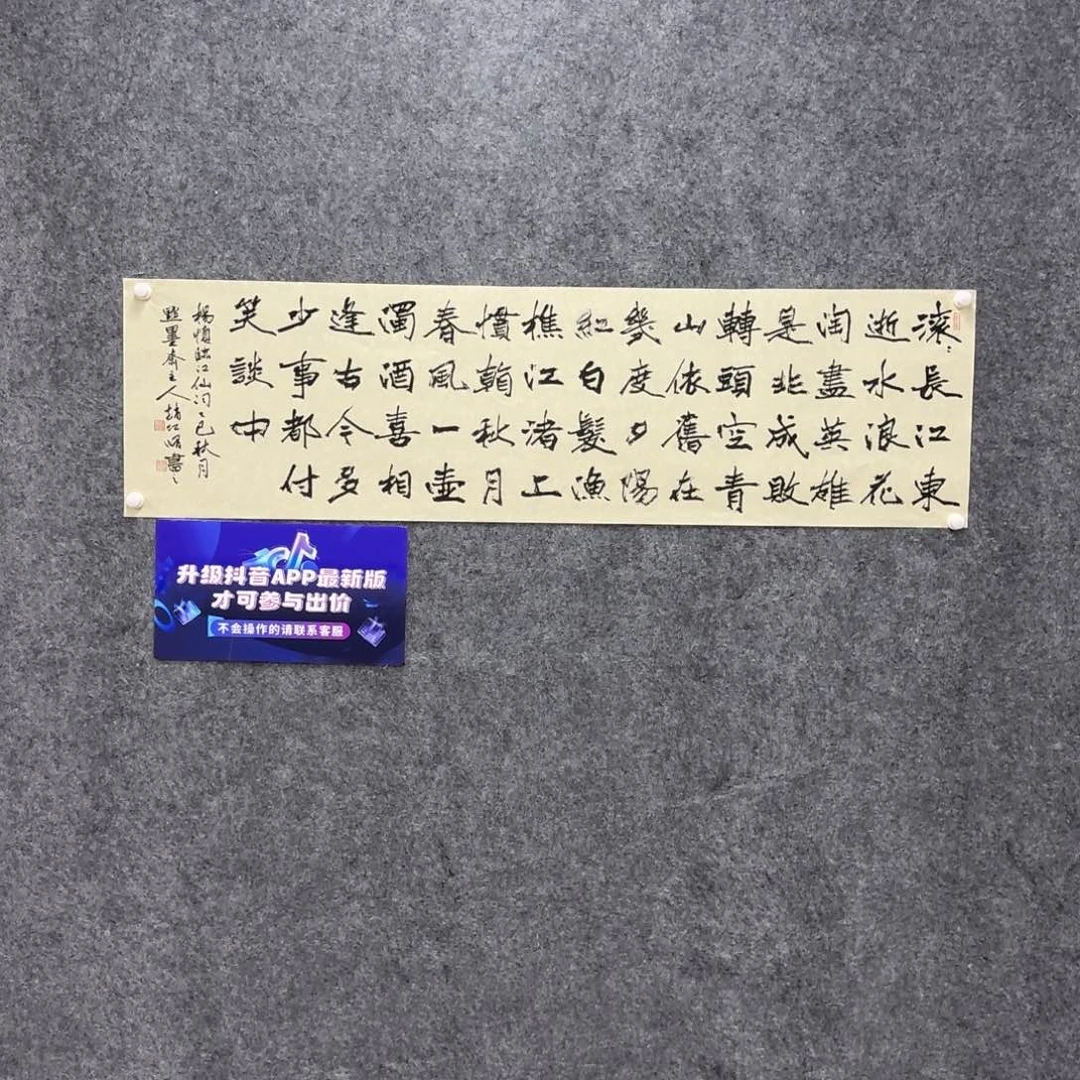 滚〻長江東
逝水浪花
淘盡英雄
是非成敗
轉頭空青
山依舊在
幾度夕陽
紅白髮漁
樵江渚上
慣看秋月
春風一壺
濁酒喜相
逢古今多
少事都付
笑談中
楊慎臨江仙词乙巳秋月
點墨齋主人趙江書
升级抖音APP最新版
才可参与出价
不会操作的请联系客服